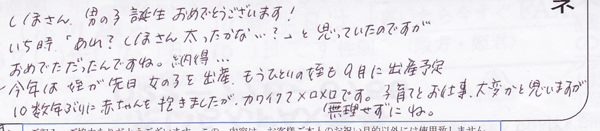 しほさん、男の子誕生おめでとうございます!
いち時「あれ?しほさん太ったかな…?」と思っていたのですが
おめでただったんですね。納得…
今年は姪が先日女の子を出産、もうひとりの姪も9月に出産予定
10数年ぶりに赤ちゃんを抱きましたが、カワイクてメロメロです。子育てとお仕事、大変かと思いますが
無理せずにね。
ネ